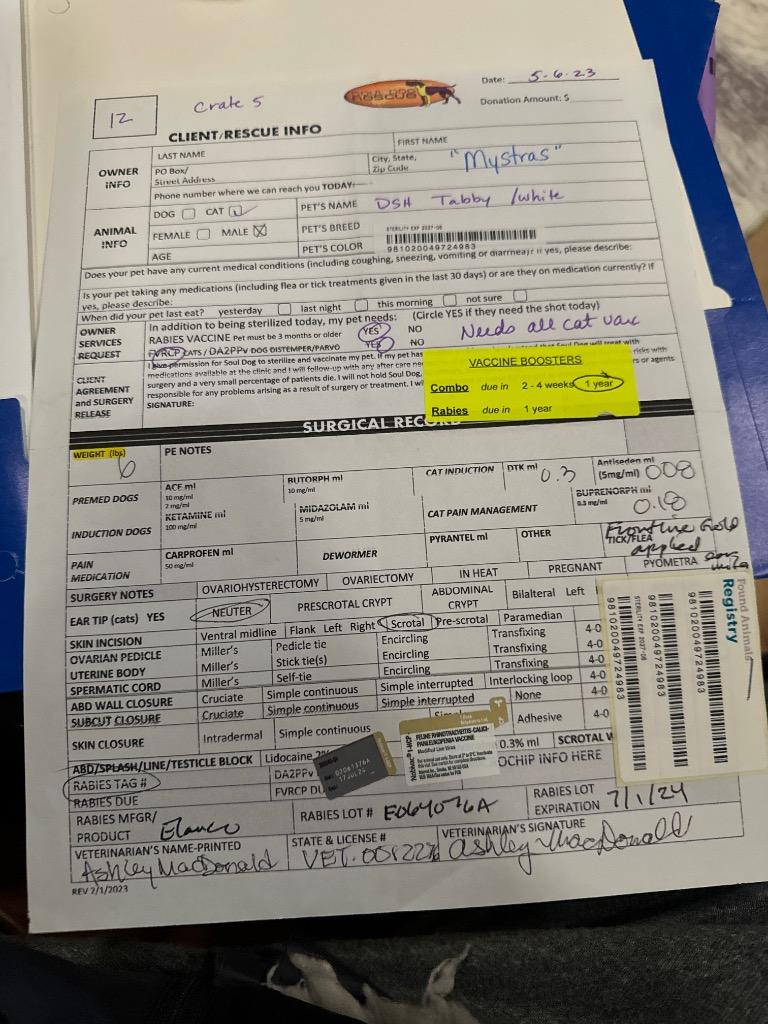 12
Crate 5
RESCUE
Date: 5-6-23
Donation Amount: $
CLIENT/RESCUE INFO
OWNER INFO
LAST NAME
FIRST NAME
"Mystras"
PO Box/
Street Address
City, State,
Zip Code
Phone number where we can reach you TODAY:
ANIMAL INFO
DOG CAT
PET'S NAME DSH Tabby /white
FEMALE MALE
PET'S BREED
AGE
PET'S COLOR
981020049724983
Does your pet have any current medical conditions (including coughing, sneezing, vomiting or diarrhea)? If yes, please describe:
Is your pet taking any medications (including flea or tick treatments given in the last 30 days) or are they on medication currently? If
yes, please describe:
When did your pet last eat? yesterday last night this morning not sure
OWNER SERVICES REQUEST
In addition to being sterilized today, my pet needs: (Circle YES if they need the shot today)
RABIES VACCINE Pet must be 3 months or older YES NO
Needs all cat vacc
FVRCP CATS / DA2PPV DOG DISTEMPER/PARVO YES NO
CLIENT AGREEMENT and SURGERY RELEASE
I have permission for Soul Dog to sterilize and vaccinate my pet. If my pet has
medications available at the clinic and I will follow-up with any after care
surgery and a very small percentage of patients die. I will not hold Soul Dog,
responsible for any problems arising as a result of surgery or treatment. I
risks with
rs or agents
SIGNATURE:
VACCINE BOOSTERS
Combo due in 2 - 4 weeks 1 year
Rabies due in 1 year
SURGICAL RECORD
WEIGHT (lbs)
6
PE NOTES
PREMED DOGS
ACE ml
10 mg/ml
2 mg/ml
BUTORPH ml
10 mg/ml
CAT INDUCTION
DTK ml 0.3
Antiseden ml
(5mg/ml) 008
INDUCTION DOGS
KETAMINE ml
100 mg/ml
MIDAZOLAM ml
5 mg/ml
CAT PAIN MANAGEMENT
BUPRENORPH ml
0.3 mg/ml
0.18
PAIN MEDICATION
CARPROFEN ml
50 mg/ml
DEWORMER
PYRANTEL ml
OTHER
TICK/FLEA
Frontline Gold
applied
SURGERY NOTES
OVARIOHYSTERECTOMY OVARIECTOMY IN HEAT PREGNANT PYOMETRA
EAR TIP (cats) YES
NEUTER PRESCROTAL CRYPT ABDOMINAL CRYPT Bilateral Left
SKIN INCISION Ventral midline Flank Left Right Scrotal Pre-scrotal Paramedian
OVARIAN PEDICLE Miller's Pedicle tie Encircling Transfixing 4-0
UTERINE BODY Miller's Stick tie(s) Encircling Transfixing 4-0
SPERMATIC CORD Miller's Self-tie Encircling Transfixing 4-0
ABD WALL CLOSURE Cruciate Simple continuous Simple interrupted Interlocking loop 4-0
SUBCUT CLOSURE Cruciate Simple continuous Simple interrupted None 4-0
SKIN CLOSURE Intradermal Simple continuous Adhesive 4-0
ABD/SPLASH/LINE/TESTICLE BLOCK Lidocaine 0.3% ml SCROTAL
RABIES TAG #
DA2PPv
RABIES DUE
FVRCP DU
OCHIP INFO HERE
Nobivac® 1-HCP
FELINE RHINOTRACHEITIS-CALICI-
PANLEUKOPENIA VACCINE
Modified Live Virus
02061376A
17JUL24
STERILITY EXP 2027-08
981020049724983
981020049724983
981020049724983
Found Animals
Registry
RABIES MFGR/
PRODUCT Elanco
RABIES LOT # E064076A
RABIES LOT
EXPIRATION 7/1/24
VETERINARIAN'S NAME-PRINTED
Ashley MacDonald
STATE & LICENSE #
VETERINARIAN'S SIGNATURE
Ashley MacDonald
REV 2/1/2023